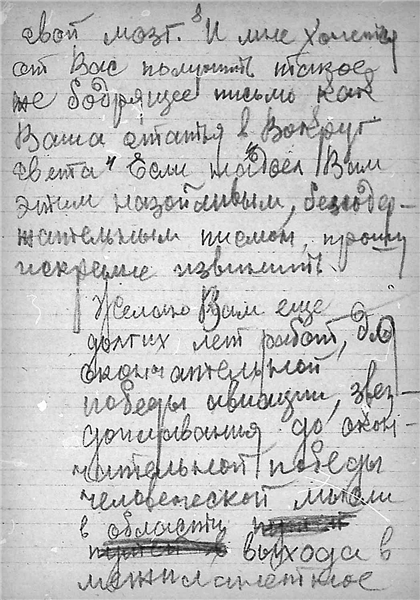 свой мозг. И мне хочется
от Вас получить такое
же бодрящее письмо как
Ваша статья в "Вокруг
света" Если надоел Вам
этим назойливым, безсодер-
жательным писмом, прошу
искренне извинить.
Желаю Вам еще
долгих лет работ, до
окончательной
победы авиации, звез-
доплавания до окон-
чательной победы
человеческой мысли
в области
выхода в
межпланетное